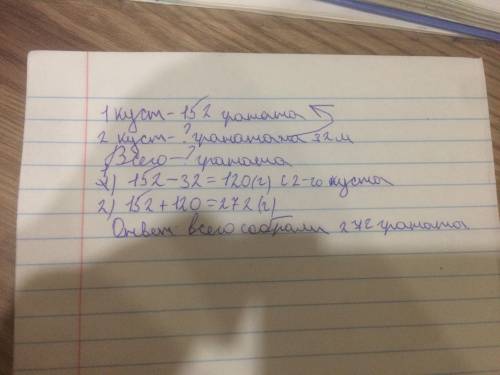 1 куст - 152 граната
2 куст - ? гранатам 32 м
Всего - ? граната
1) 152 - 32 = 120 (г) с 2-го куста
2) 152 + 120 = 272 (г)
Ответ всего собрали 272 граната